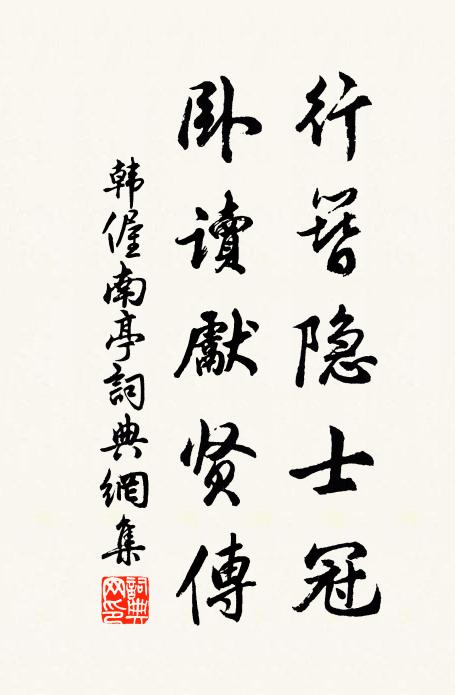 行簮隐士冠
卧讀獻贤傳
韩偓南亭詞典網集
詞典网印